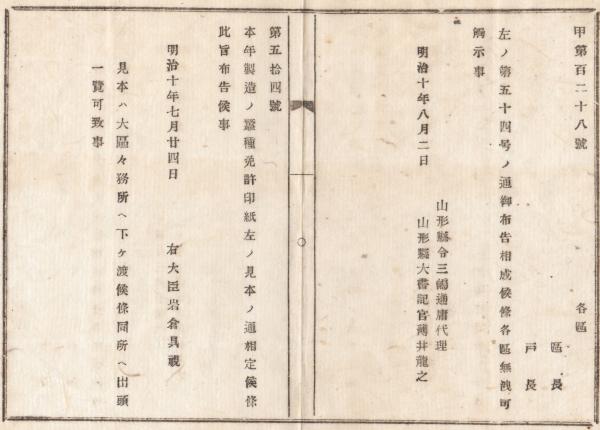 甲第百二十八號
各區
區長
戸長
左ノ第五十四号ノ通御布告相成候條各區無洩可
觸示事
明治十年八月二日
山形縣令三嶋通庸代理
山形縣大書記官薄井龍之
第五拾四號
本年製造ノ蠶種免許印紙左ノ見本ノ通相定候條
此旨布告候事
明治十年七月廿四日
右大臣岩倉具視
見本ハ大區々務所ヘ下ケ渡候條同所ヘ出頭
一覽可致事